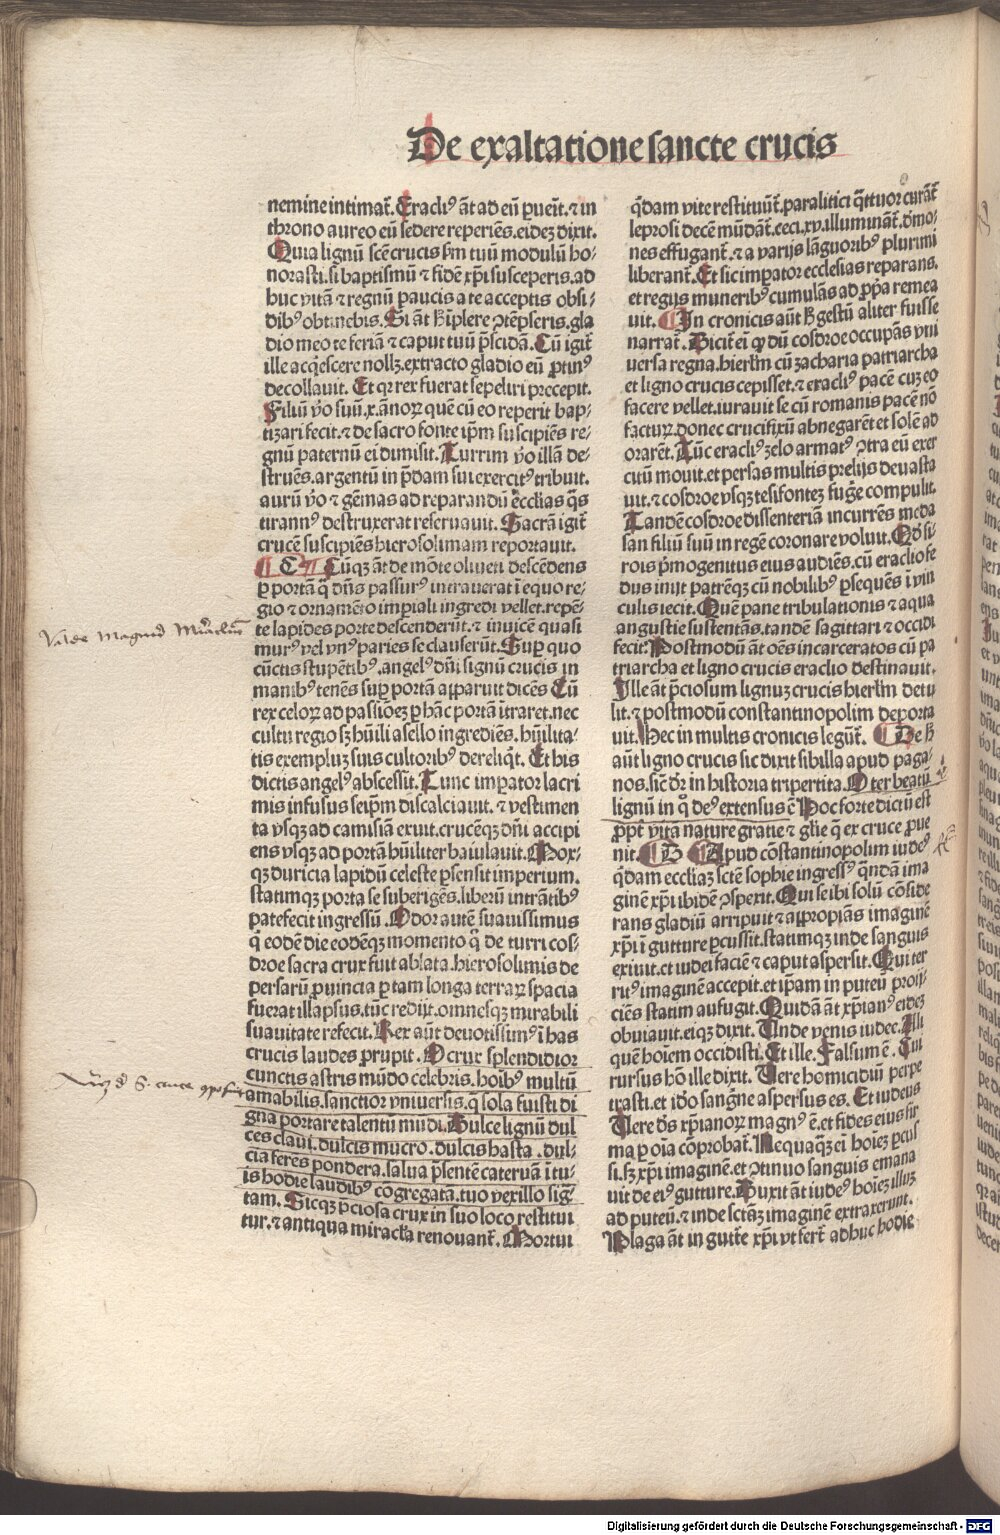 De exaltatione sancte crucis
nemine intimat̃. Eraclịꝰ āt ad eū ꝑueīt. ⁊ in
throno aureo eū sedere reperiēs. eidez dixit.
Quia lignū scē crucis ẜm tuū modulū ho⸗
norasti. si baptismū ⁊ fidē xp̄i susceperis. ad
huc vitā ⁊ regnū paucis a te acceptis obsi⸗
dibꝰ obtinebis. Si āt ħ īplere ꝯtēpseris. gla
dio meo te feriā ⁊ caput tuū p̄scidā. Cū igit̃
ille acq̇escere nollꝫ. extracto gladio eū ꝓtinꝰ
decollauit. Et qꝛ rex fuerat sepeliri precepit.
Filiū ṽo suū .x. ānoꝝ quē cū eo reperit bap⸗
tizari fecit. ⁊ de sacro fonte ip̄m suscipiēs re⸗
gnū paternū ei dimisit. Turrim ṽo illā de⸗
struēs. argentū in p̄dam sui exercitꝰ tribuit.
aurū ṽo ⁊ gēmas ad reparandū ecclias q̄s
tirannꝰ destruxerat reseruauit. Sacrā igit̃
crucē suscipiēs hierosolimam reportauit.
¶ C ¶ Cūqꝫ āt de mōte oliueti descēdens
ꝑ portā q̄ dn̄s passurꝰ intrauerat ī equo re⸗
gio ⁊ ornamēto impiali ingredi vellet. repē⸗
te lapides porte descenderūt. ⁊ inuicē quasi
murꝰ vel vnꝰ paries se clauserūt. Suꝑ quo
cūctis stupētibꝰ. angelꝰ dn̄i signū crucis in
manibꝰ tenēs suꝑ portā apparuit dicēs Cū
rex celoꝝ ad passiōeꝫ ꝑ hāc portā itraret. nec
cultu regio sꝫ hūili asello ingrediēs. hūilita⸗
tis exempluꝫ suis cultoribꝰ dereliq̇t. Et his
dictis angelꝰ abscessit. Tunc imꝑator lacri
mis infusus seip̄m discalciauit. ⁊ vestimen
ta vsqꝫ ad camisiā exuit. crucēqꝫ dn̄i accipi
ens vsqꝫ ad portā hūiliter baiulauit. Mox⸗
qꝫ duricia lapidū celeste p̄sensit imperium.
statimqꝫ porta se suberigēs. liberū intrātibꝰ
patefecit ingressū. Odor autē suauissimus
q̇ eodē die eodēqꝫ momento q̇ de turri cos⸗
droe sacra crux fuit ablata. hierosolimis de
persarū ꝓuincia ꝑ tam longa terraꝝ spacia
fuerat illapsus. tūc redijt. omnesqꝫ mirabili
suauitate refecit. Rex aūt deuotissimꝰ ī has
crucis laudes ꝓrupit. O crux splendidior
cunctis astris mūdo celebris. hoībꝰ multū
amabilis. sanctior vniuersis. q̄ sola fuisti di
gna portare talentū mūdi. Dulce lignū dul
ces claui. dulcis mucro. dulcis hasta. dul⸗
cia ferēs pondera. salua p̄sentē cateruā ī tu⸗
is hodie laudibꝰ cōgregatā. tuo vexillo sig̃
tam. Sicqꝫ p̄ciosa crux in suo loco restitui
tur. ⁊ antiqua miracl̄a renouant̃. Mortui
q̇dam vite restituūt̃. paralitici q̄ttuor curāt̃
leprosi decē mūdāt̃. ceci .xv. illuminānt̃. dēmo⸗
nes effugant̃. ⁊ a varijs lāguoribꝰ plurimi
liberant̃. Et sic imꝑator ecclesias reparans.
et regijs muneribꝰ cumulās ad ꝓp̄a remea
uit. ¶ In cronicis aūt ħ gestū aliter fuisse
narrat̃. Dicit̃ eī ꝙ dū cosdroe occupās vni
uersa regna. hierl̄m cū zacharia patriarcha
et ligno crucis cepisset. ⁊ eraclịꝰ pacē cuꝫ eo
facere vellet. iurauit se cū romanis pacē nō
facturꝝ. donec crucifixū abnegarēt et solē ad
orarēt. Tūc eraclịꝰ zelo armatꝰ ꝯtra eū exer
citū mouit. et persas multis prelijs deuasta
uit. ⁊ cosdroe vsqꝫ tesifonteꝫ fuḡe compulit.
Tandē cosdroe dissenteriā incurrēs meda
san filiū suū in regē coronare voluit. Qd̄ si⸗
rois p̄mogenitus eius audiēs. cū eraclio fe
dus iniit patrēqꝫ cū nobilibꝰ ꝑsequēs ī vin
culis iecit. Quē pane tribulationis ⁊ aqua
angustie sustentās. tandē sagittari ⁊ occidi
fecit. Postmodū āt oēs incarceratos cū pa
triarcha et ligno crucis eraclio destinauit.
Ille āt p̄ciosum lignuꝫ crucis hierl̄m detu
lit. ⁊ postmodū constantinopolim deporta
uit. Hec in multis cronicis legūt̃. ¶ De ħ
aūt ligno crucis sic dixit sibilla apud paga⸗
nos. sic̄ dr̄ in historia tripertita. O ter beatū
lignū in q̊ deꝰ extensus ē Hoc forte dictū est
ꝓpt̃ vitā nature gratie ⁊ gl̄ie q̄ ex cruce ꝓue
nit. ¶ D ¶ Apud cōstantinopolim iudeꝰ
q̇dam eccliaꝫ sctē sophie ingressꝰ q̄ndā ima
ginē xp̄i ibidē ꝯspexit. Qui se ibi solū cōside
rans gladiū arripuit ⁊ appropiās imaginē
xp̄i ī gutture ꝑcussit. statimqꝫ inde sanguis
exiuit. et iudei faciē ⁊ caput aspersit. Qui ter
ritꝰ imaginē accepit. et ip̄am in puteū proij⸗
ciēs statim aufugit. Quidā āt xp̄ianꝰ eideꝫ
obuiauit. eiqꝫ dixit. Unde venis iudee. Ali
quē hoīem occidisti. Et ille. Falsum ē. Cui
rursus hō ille dixit. Uere homicidiū perpe
trasti. et iō sanḡne aspersus es. Et iudeus
Uere dꝰs xp̄ianoꝝ magnꝰ ē. et fides eius fir
ma ꝑ oīa cōprobat̃. Nequaqꝫ eī hoīeꝫ ꝑcus
si. sꝫ xp̄i imaginē. et ꝯtinuo sanguis emana
uit de eiꝰ gutture. Duxit āt iudeꝰ hoīeꝫ illuꝫ
ad puteū. ⁊ inde sctāꝫ imaginē extraxerunt.
Plaga āt in gutt̃e xp̄i vt fert̃ adhuc hodie
Valde magnū Miraclūm
Digitalisierung gefördert durch die Deutsche Forschungsgemeinschaft - DFG